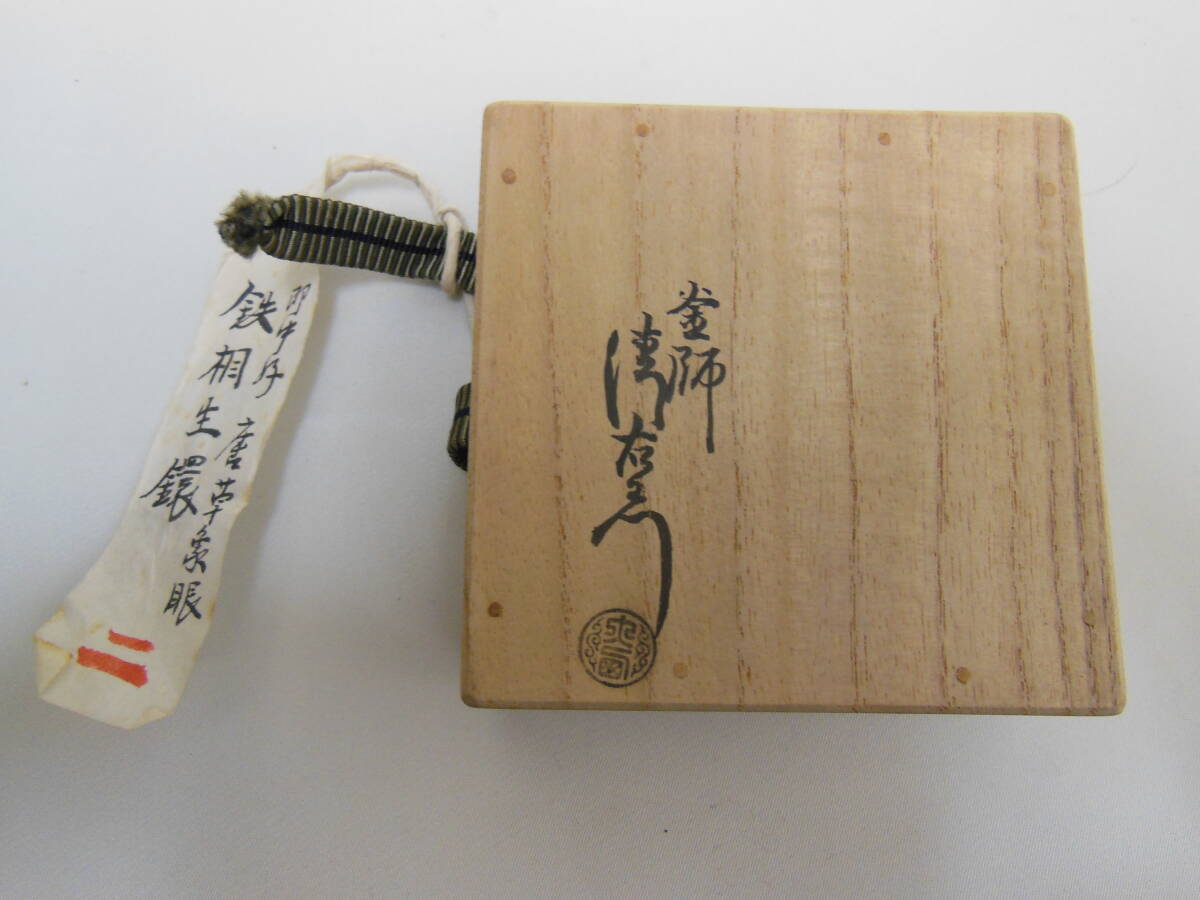 釜師
清右衛門
即中好 唐草象眼
鉄相生鐶
二